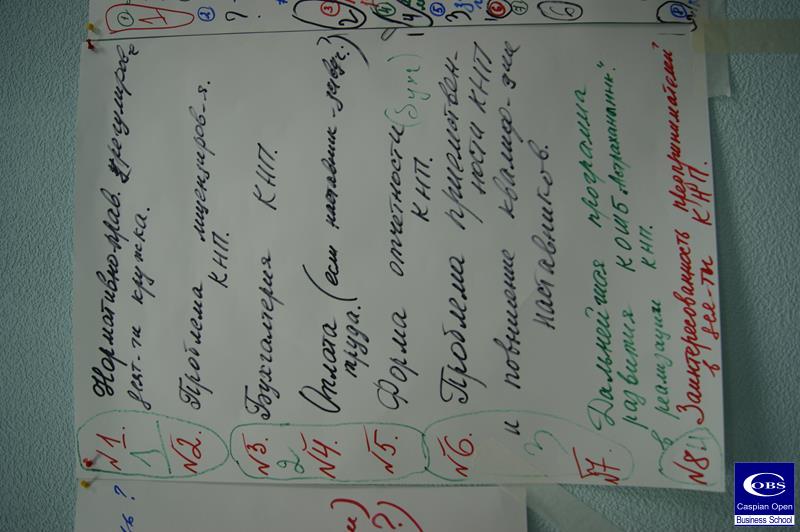 №1. Нормативно-прав. регулиров-е
деят-ти кружка.
№2. Проблема лицензиров-я.
КНП.
№3. Бухгалтерия КНП.
№4. Оплата (если наставник
труда.
№5. Форма отчетности
КНП.
№6. Проблема приемственности
ности КНП
и повышение квалиф-ции
наставников.
№7. Дальнейшая программа
развития КОШБ „Астраханпинк".
в реализации КНП.
№8 Заинтересованность предпринимателей
в дея-ти КНП.
1
2
3
OBS
Caspian Open
Business School